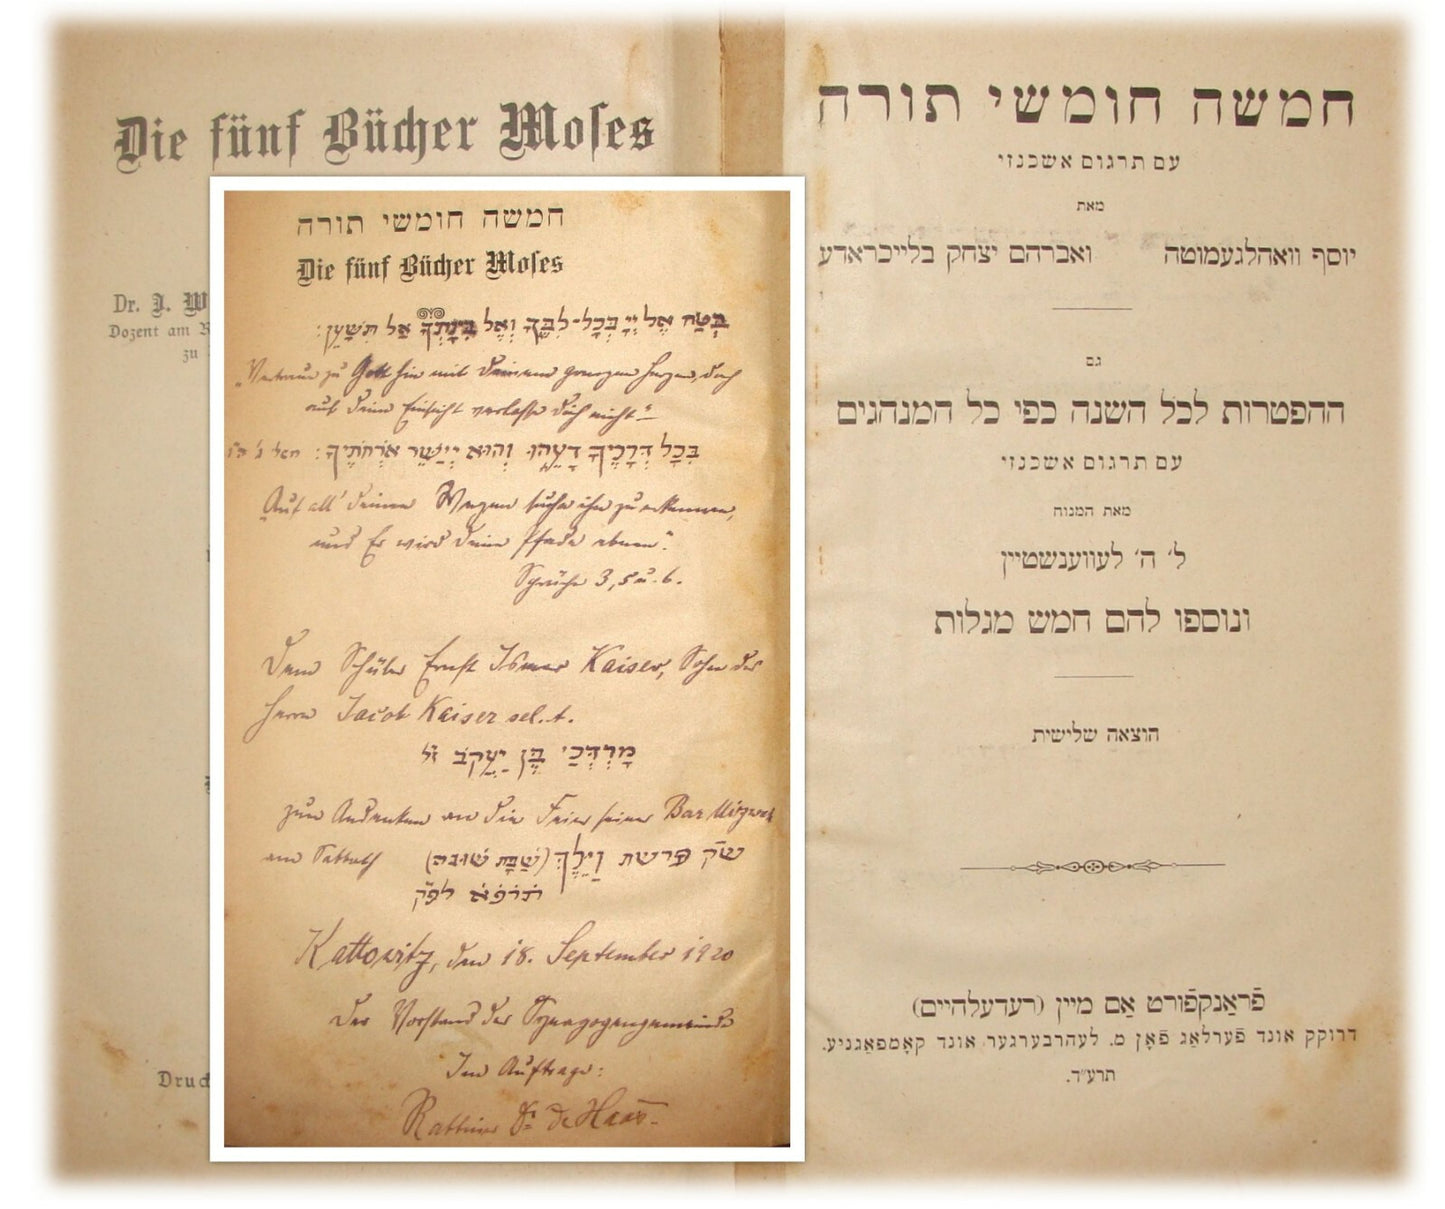 Die fünf Bücher Moses
Dr. J. W
Dozent am
zu
Druck
חמשה חומשי תורה
Die fünf Bücher Moses
בְּטַח אֶל יְיָ בְּכָל-לִבֶּךָ וְאֶל בִּינָתְךָ אַל תִּשָּׁעֵן:
„Vertraue zu Gott hin mit deinem ganzen Herzen, doch
auf deine Einsicht verlasse dich nicht“
בְּכָל דְּרָכֶיךָ דָעֵהוּ וְהוּא יְיַשֵּׁר אֹרְחֹתֶיךָ:
„Auf all' deinen Wegen suche ihn zu erkennen,
und Er wird deine Pfade ebnen“.
Sprüche 3, 5 u. 6.
Dem Schüler Ernst Ismar Kaiser, Sohn des
Herrn Jacob Kaiser sel. A.
מָרְדְּכַי בֶּן יַעֲקֹב ז״ל
zum Andenken an die Feier seiner Bar Mizwah
am Sabbath ש״ק פרשת וַיֵּלֶךְ (שַׁבָּת שׁוּבה)
תרפא לפ״ק
Kattowitz, den 18. September 1920
Der Vorstand der Synagogengemeinde
Im Auftrage:
Rabbiner Dr. de Haas.
חמשה חומשי תורה
עם תרגום אשכנזי
מאת
יוסף וואהלגעמוטה ואברהם יצחק בלייכראדע
גם
ההפטרות לכל השנה כפי כל המנהגים
עם תרגום אשכנזי
מאת המנוח
ל׳ ה׳ לעווענשטיין
ונוספו להם חמש מגלות
הוצאה שלישית
פֿראַנקפֿורט אַם מיין (רעדעלהיים)
דרוקק אונד פֿערלאַג פֿאָן מ. לעהרבערגער אונד קאָמפּאַגניע.
תרע״ד.